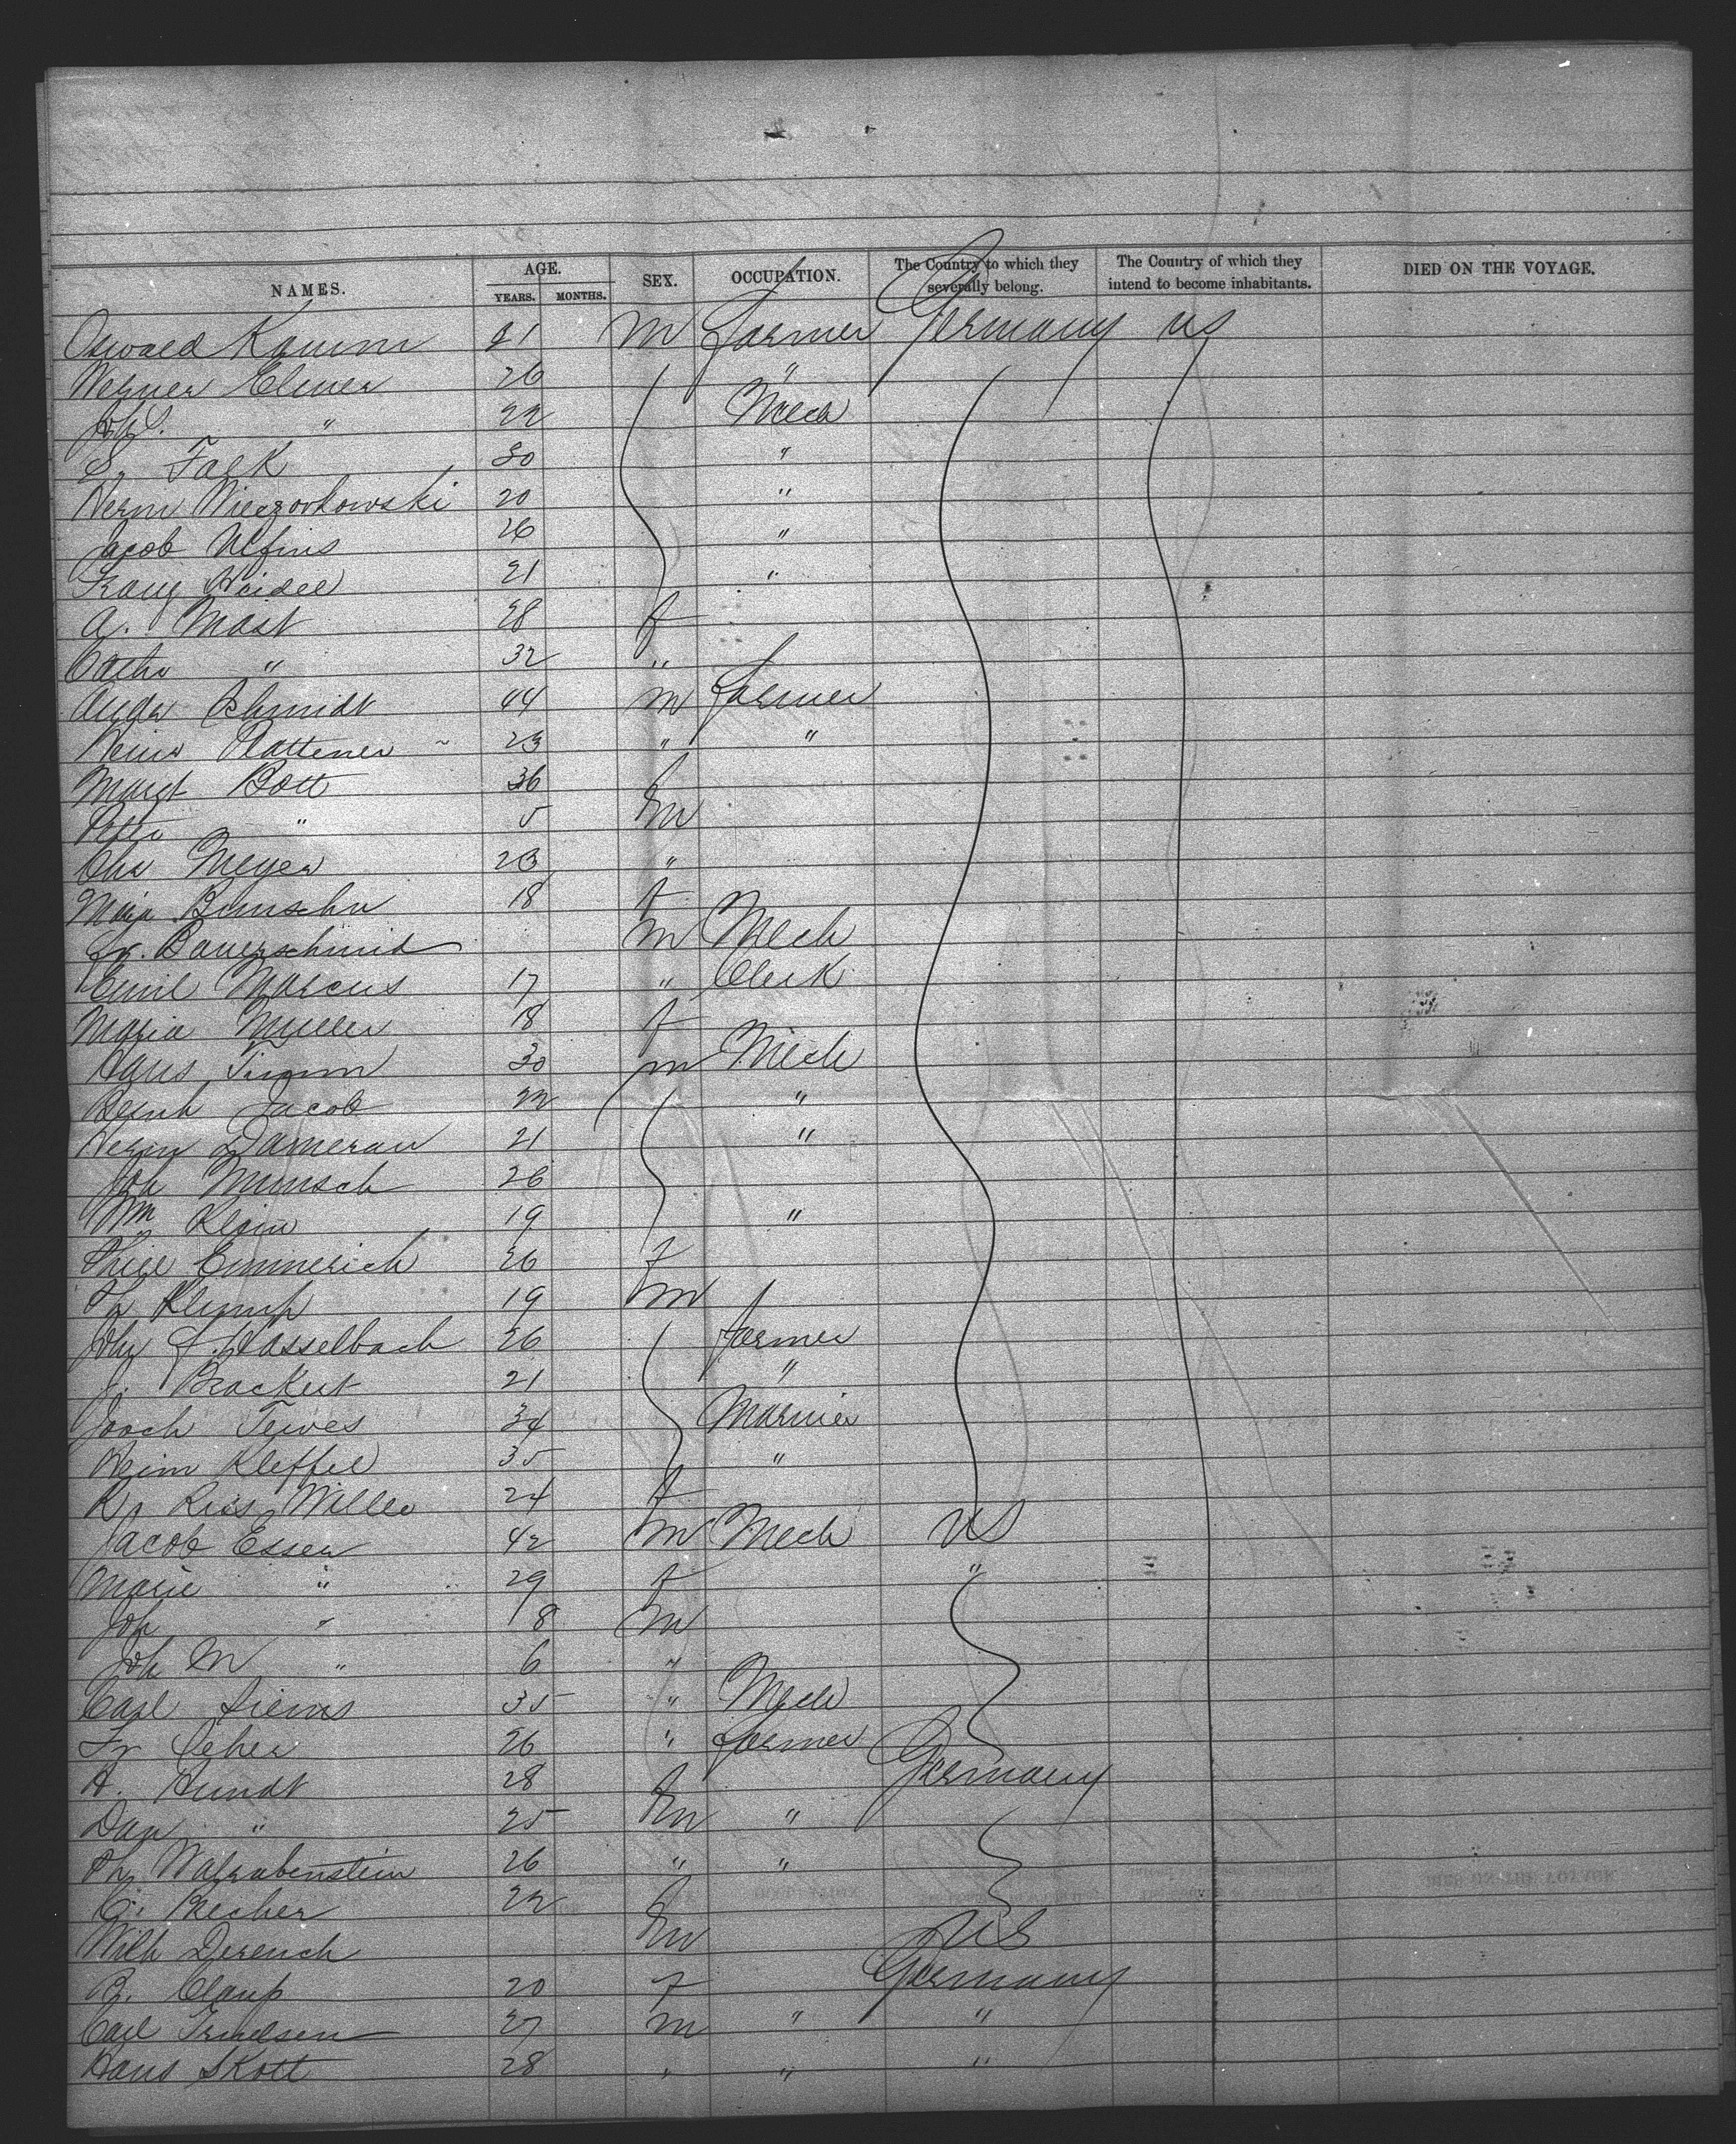 NAMES. AGE. YEARS. MONTHS. SEX. OCCUPATION. The Country to which they severally belong. The Country of which they intend to become inhabitants. DIED ON THE VOYAGE.
Oswald Kamm 21 m farmer Germany US
Werner Elmer 26 "
Joh S. " 22 Mech
Fr Falk 30 "
Herm Wieczorkowski 20 "
Jacob 26 "
Franz Weidel 21 "
A. Mast 28 f
Catha " 32 "
Schmidt 44 m farmer
Plattener 23 " "
Margt Bott 36 f
Peter " 5 m
Chs Meyer 23 "
18 f
Fr. Bauerschmid m Mech
Emil Marcus 17 " Clerk
Maria Muller 18 f
Hans Timm 30 m Mech
Bernh Jacob 22 "
Herm Damerau 21 "
Joh Munsch 26
Wm Klein 19 "
Emmerich 26 f
Klump 19 m
Joh F. Hasselbach 26 farmer
J. Brackert 21 "
Joach Tewes 34 Mariner
Heinr Kleffel 35 "
24 f
Jacob Esser 42 m Mech US
Marie " 29 f "
Joh " 8 m
Joh M " 6 "
Carl Siems 35 " Mech
Fr 26 " farmer
A. Hundt 28 f Germany
Dan " 25 m "
Walrabenstein 26 " "
C. Becher 22 f
Wilh m US
B. 20 f Germany
Carl Truelsen 27 m " "
Hans Skott 28 " " "